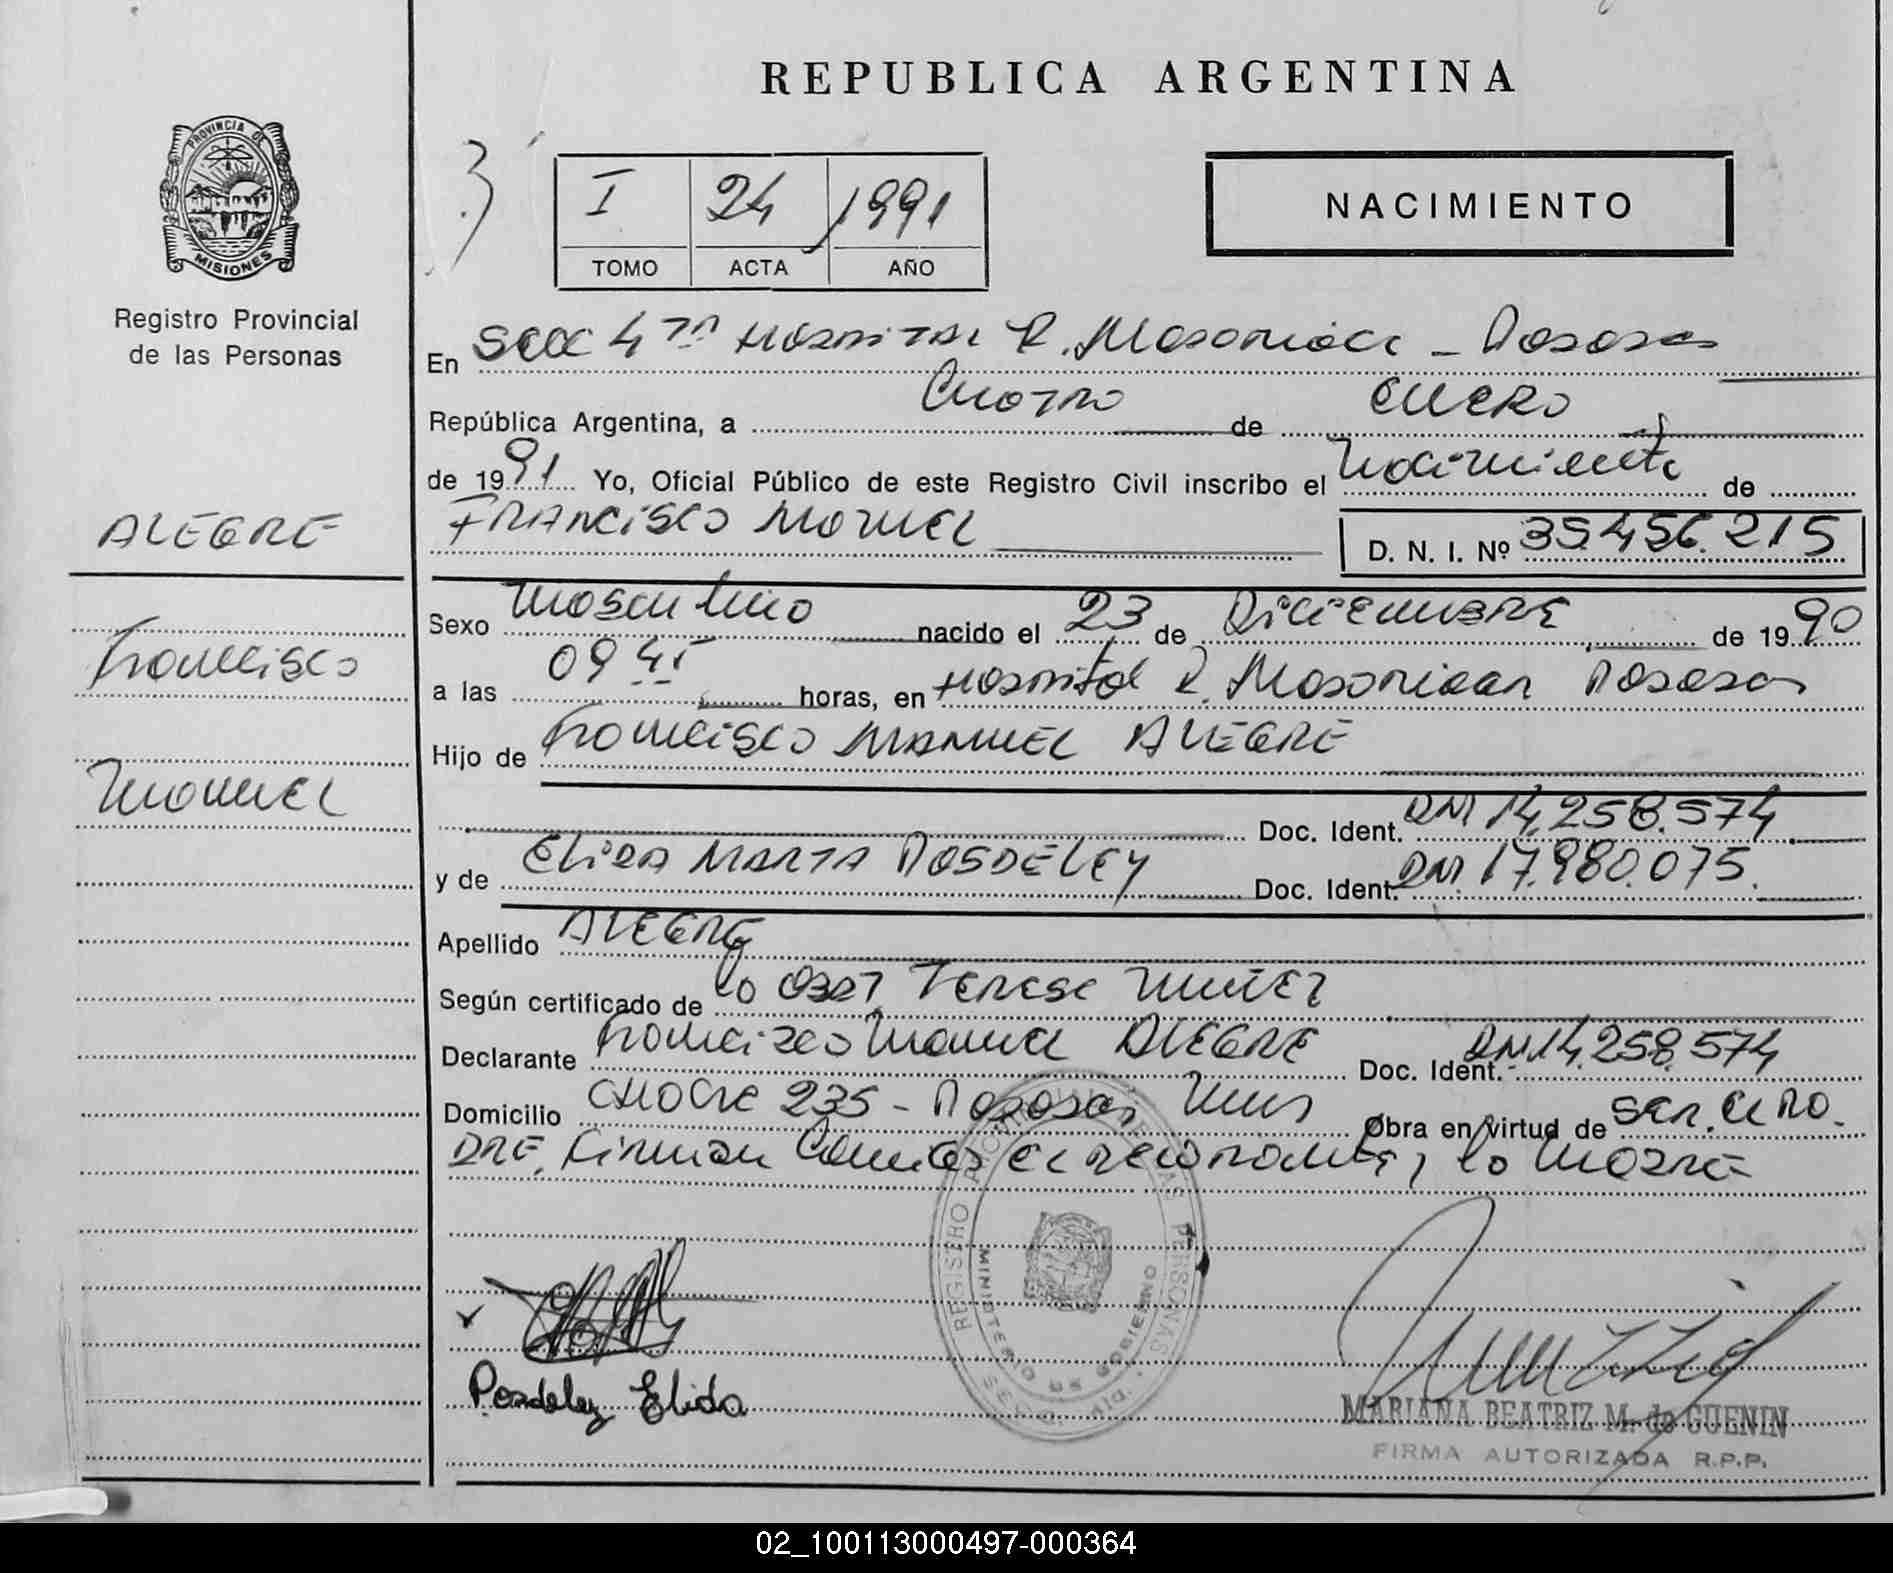 REPUBLICA ARGENTINA
PROVINCIA DE
MISIONES
Registro Provincial
de las Personas
I 24 1991
TOMO ACTA AÑO
NACIMIENTO
En Secc 4ta Hospital R. Madariaga - Posadas
República Argentina, a Cuatro de ENERO
de 1991 Yo, Oficial Público de este Registro Civil inscribo el Nacimiento de
FRANCISCO MANUEL D. N. I. Nº 35.456.215
ALEGRE
Francisco
Manuel
Sexo Masculino nacido el 23 de DICIEMBRE de 1990
a las 09 45 horas, en Hospital R. Madariaga Posadas
Hijo de Francisco MANUEL ALEGRE
Doc. Ident. DNI 14.258.574
y de ELIDA MARTA POSDELEY Doc. Ident. DNI. 17.980.075.
Apellido ALEGRE
Según certificado de la Obst. Teresa
Declarante Francisco Manuel ALEGRE Doc. Ident. DNI 14.258.574
Domicilio 235 - Posadas Mnes Obra en virtud de ser el PA.
DRE. Firman el declarante, la MADRE
Posdeley Elida
REGISTRO PERSONAS
MINISTERIO DE GOBIERNO
MARIANA BEATRIZ M. de GUENIN
FIRMA AUTORIZADA R.P.P.
02_100113000497-000364